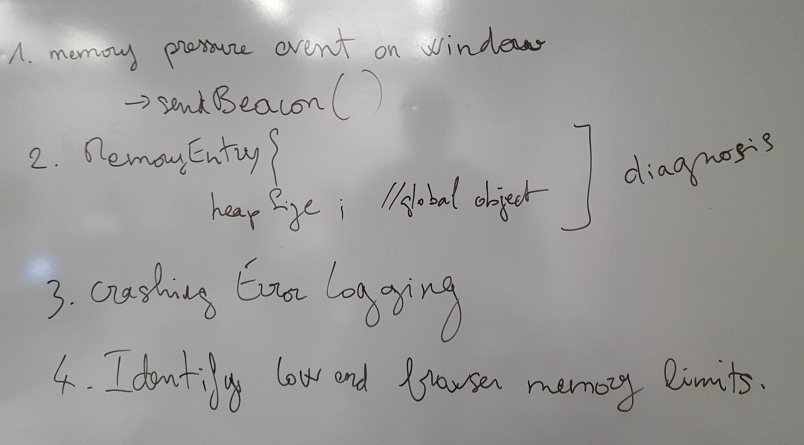 1. memory pressure event on window
→ sendBeacon()
2. MemoryEntry {
heapSize ; //global object ] diagnosis
3. Crashing Error Logging
4. Identify low end browser memory limits.